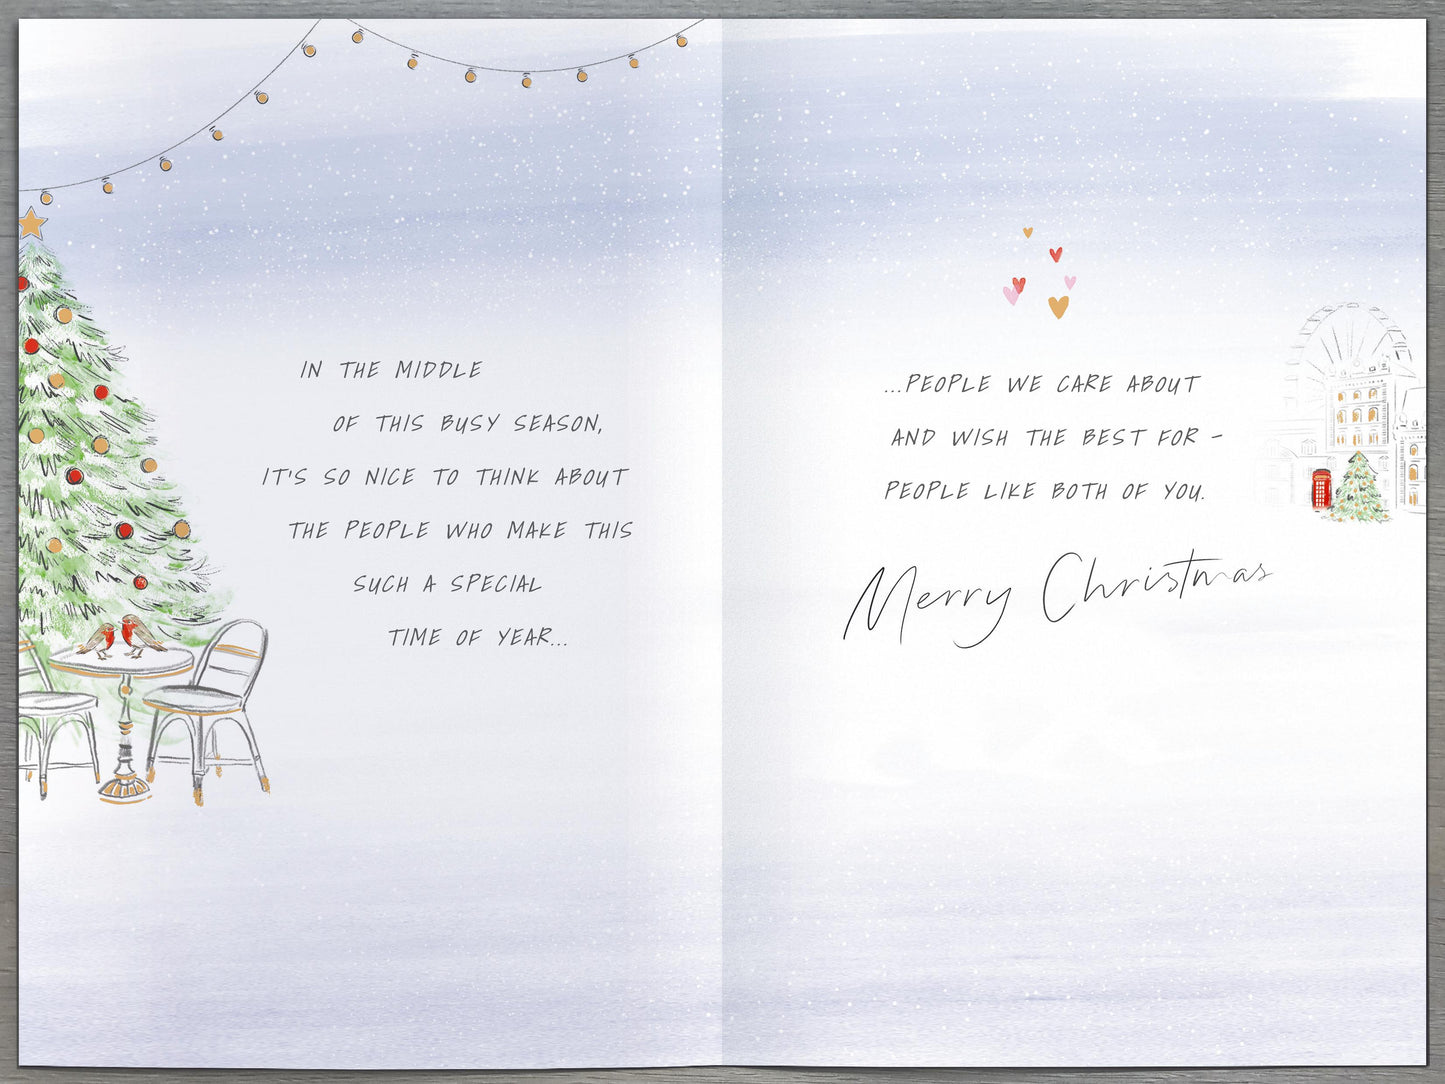 IN THE MIDDLE
OF THIS BUSY SEASON,
IT'S SO NICE TO THINK ABOUT
THE PEOPLE WHO MAKE THIS
SUCH A SPECIAL
TIME OF YEAR...
...PEOPLE WE CARE ABOUT
AND WISH THE BEST FOR -
PEOPLE LIKE BOTH OF YOU.
Merry Christmas